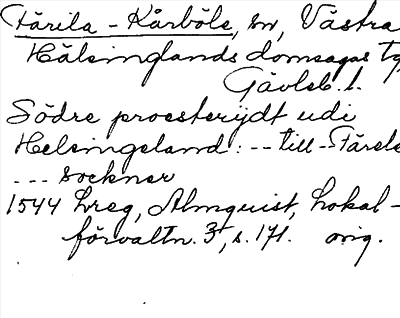 Färila - Kårböle, sn, Västra
Hälsinglands domsagas tg
Gävleb. l.
Södre proesterijdt udi
Helsingeland: -- till - Färele
--- sockner
1544 Lreg, Almquist, Lokal-
förvaltn. 3, s. 171. orig.